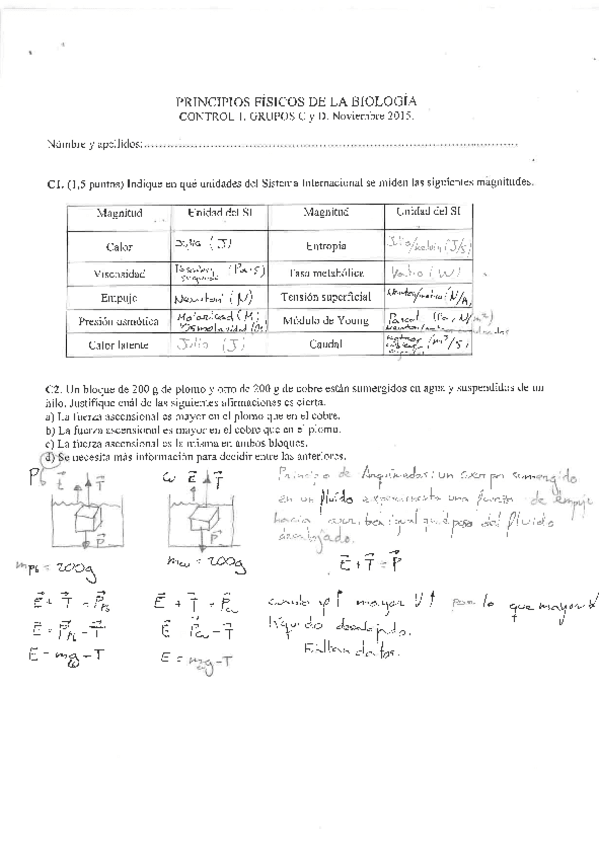 PRINCIPIOS FÍSICOS DE LA BIOLOGÍA
CONTROL 1. GRUPOS C y D. Noviembre 2015.
Nombre y apellidos:
C1. (1,5 puntos) Indique en qué unidades del Sistema Internacional se miden las siguientes magnitudes.
Magnitud Unidad del SI Magnitud Unidad del SI
Calor Julio (J) Entropía Julio/kelvin (J/
Viscosidad (Pa·s) Tasa metabólica Vatio (W)
Empuje Newton (N) Tensión superficial Newton/metro (N/
Presión osmótica Molaridad (M; Módulo de Young Pascal (Pa, N/m²)
Osmolaridad
Calor latente Julio (J) Caudal (m³/s)
C2. Un bloque de 200 g de plomo y otro de 200 g de cobre están sumergidos en agua y suspendidos de un
hilo. Justifique cuál de las siguientes afirmaciones es cierta.
a) La fuerza ascensional es mayor en el plomo que en el cobre.
b) La fuerza ascensional es mayor en el cobre que en el plomo.
c) La fuerza ascensional es la misma en ambos bloques.
d) Se necesita más información para decidir entre las anteriores.
Pb E T Cu E T Principio de un cuerpo sumergido
en un fluido experimenta una fuerza de empuje
hacia arriba igual peso del fluido
P P desalojado.
m Pb = 200g m Cu = 200g E + T = P
E + T = P Pb E + T = P Cu cuando ρ↑ mayor V↑ por lo que mayor V
E = P Pb - T E P Cu - T líquido desalojado.
E = mg - T E = mg - T Faltan datos.